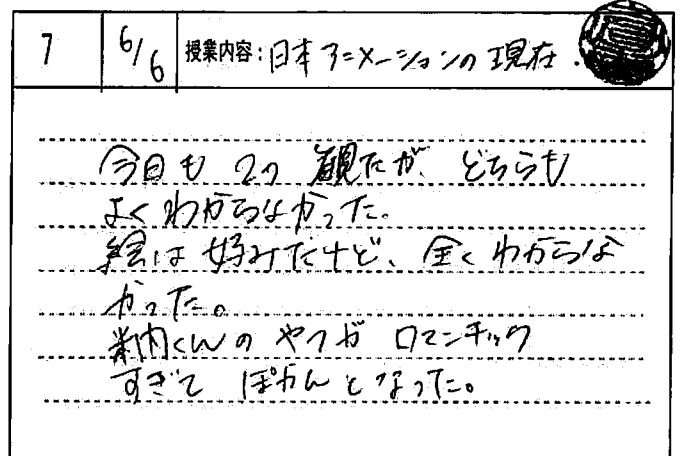 7 6/6 授業内容:日本アニメーションの現在.
今日も2つ観たが、どちらも
よくわからなかった。
絵は好みだけど、全くわからな
かった。
内くんのやつがロマンチック
すぎてぽかんとなった。